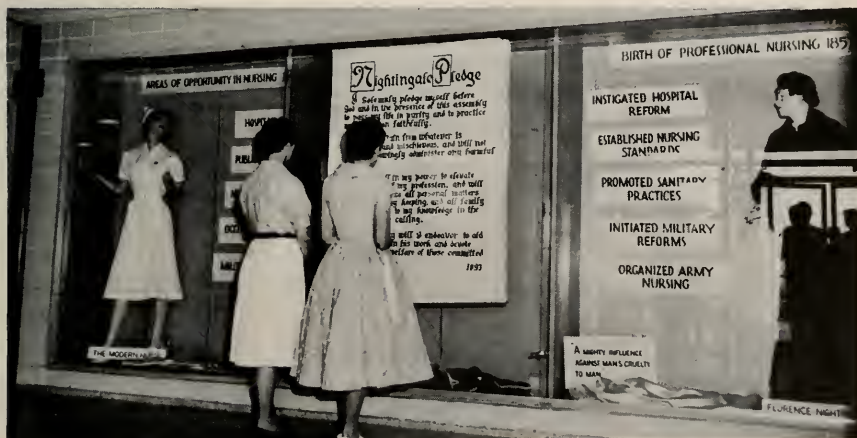 AREAS OF OPPORTUNITY IN NURSING
THE MODERN
Nightingale Pledge
I Solemnly pledge myself before
God and in the presence of this assembly
to pass my life in purity and to practice
faithfully.
from whatever is
and mischievous, and will not
administer any harmful
in my power to elevate
my profession, and will
all personal matters
keeping, and all family
to my knowledge in the
calling.
will I endeavor to aid
in his work and devote
welfare of those committed
1893
BIRTH OF PROFESSIONAL NURSING 185
INSTIGATED HOSPITAL
REFORM
ESTABLISHED NURSING
STANDARDS
PROMOTED SANITARY
PRACTICES
INITIATED MILITARY
REFORMS
ORGANIZED ARMY
NURSING
A MIGHTY INFLUENCE
AGAINST MAN'S CRUELTY
TO MAN
FLORENCE NIGHT